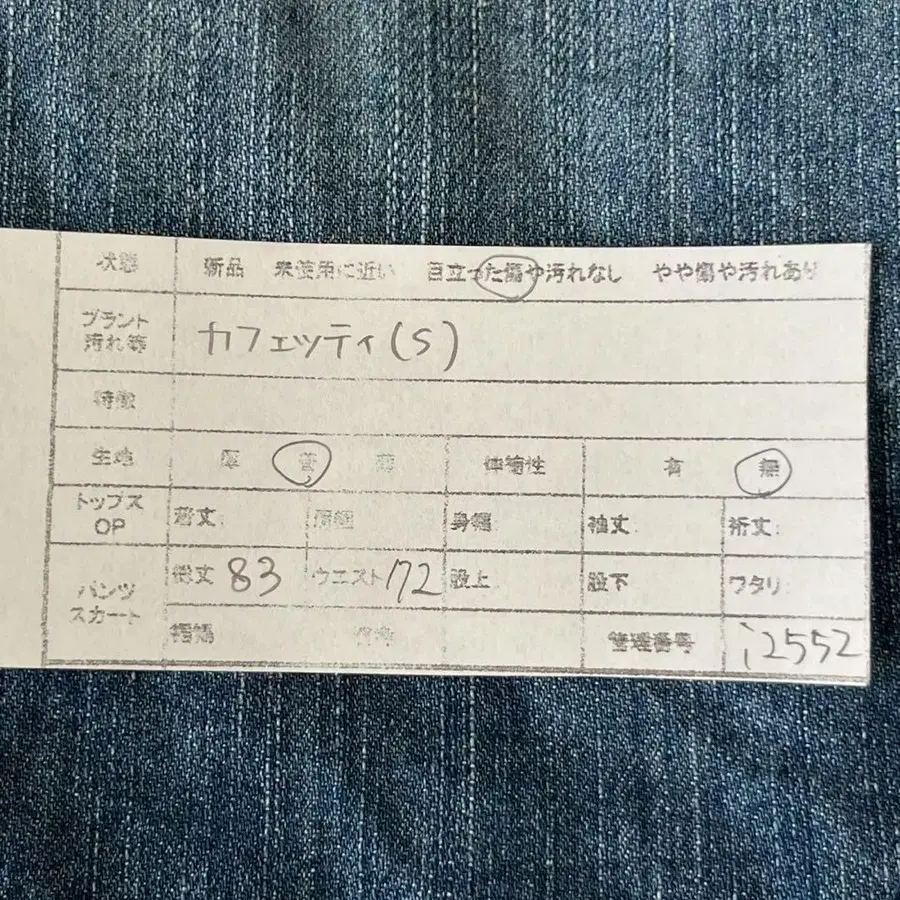 状態 新品 未使用に近い 目立った傷や汚れなし やや傷や汚れあり
ブランド 汚れ等 カフェッティ(S)
特徴
生地 厚 普 薄 伸縮性 有 無
トップス OP 着丈: 肩幅 身幅: 袖丈: 裄丈:
パンツ スカート 総丈 83 ウエスト 72 股上 股下 ワタリ
裾幅 備考 管理番号 i2552